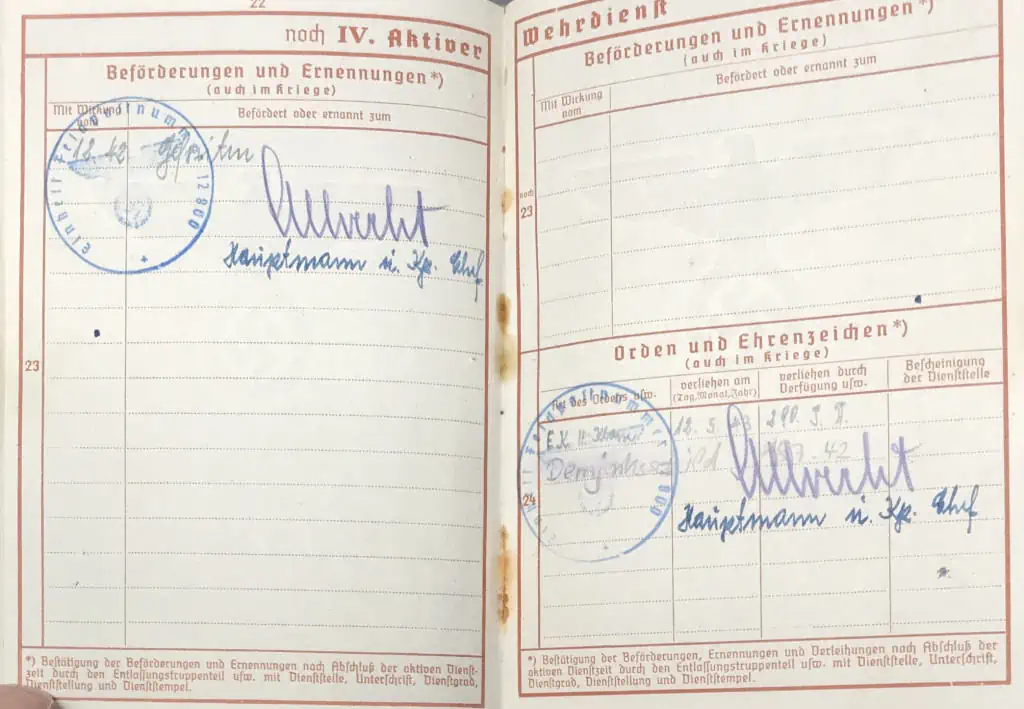 22
noch IV. Aktiver
Beförderungen und Ernennungen*)
(auch im Kriege)
Mit Wirkung vom
Befördert oder ernannt zum
Einheit Feldpostnummer 12 800
Hauptmann u. Kp. Chef
23
*) Bestätigung der Beförderungen und Ernennungen nach Abschluß der aktiven Dienst-
zeit durch den Entlassungstruppenteil usw. mit Dienststelle, Unterschrift, Dienstgrad,
Dienststellung und Dienststempel.
Wehrdienst
Beförderungen und Ernennungen*)
(auch im Kriege)
Mit Wirkung vom
Befördert oder ernannt zum
noch
23
Orden und Ehrenzeichen*)
(auch im Kriege)
Art des Ordens usw.
verliehen am
(Tag, Monat, Jahr)
verliehen durch
Verfügung usw.
Bescheinigung
der Dienststelle
E.K. II. Klasse 12. 5. 43 290. I. D.
Demjanskschild
Hauptmann u. Kp. Chef
24
*) Bestätigung der Beförderungen, Ernennungen und Verleihungen nach Abschluß der
aktiven Dienstzeit durch den Entlassungstruppenteil usw. mit Dienststelle, Unterschrift,
Dienstgrad, Dienststellung und Dienststempel.